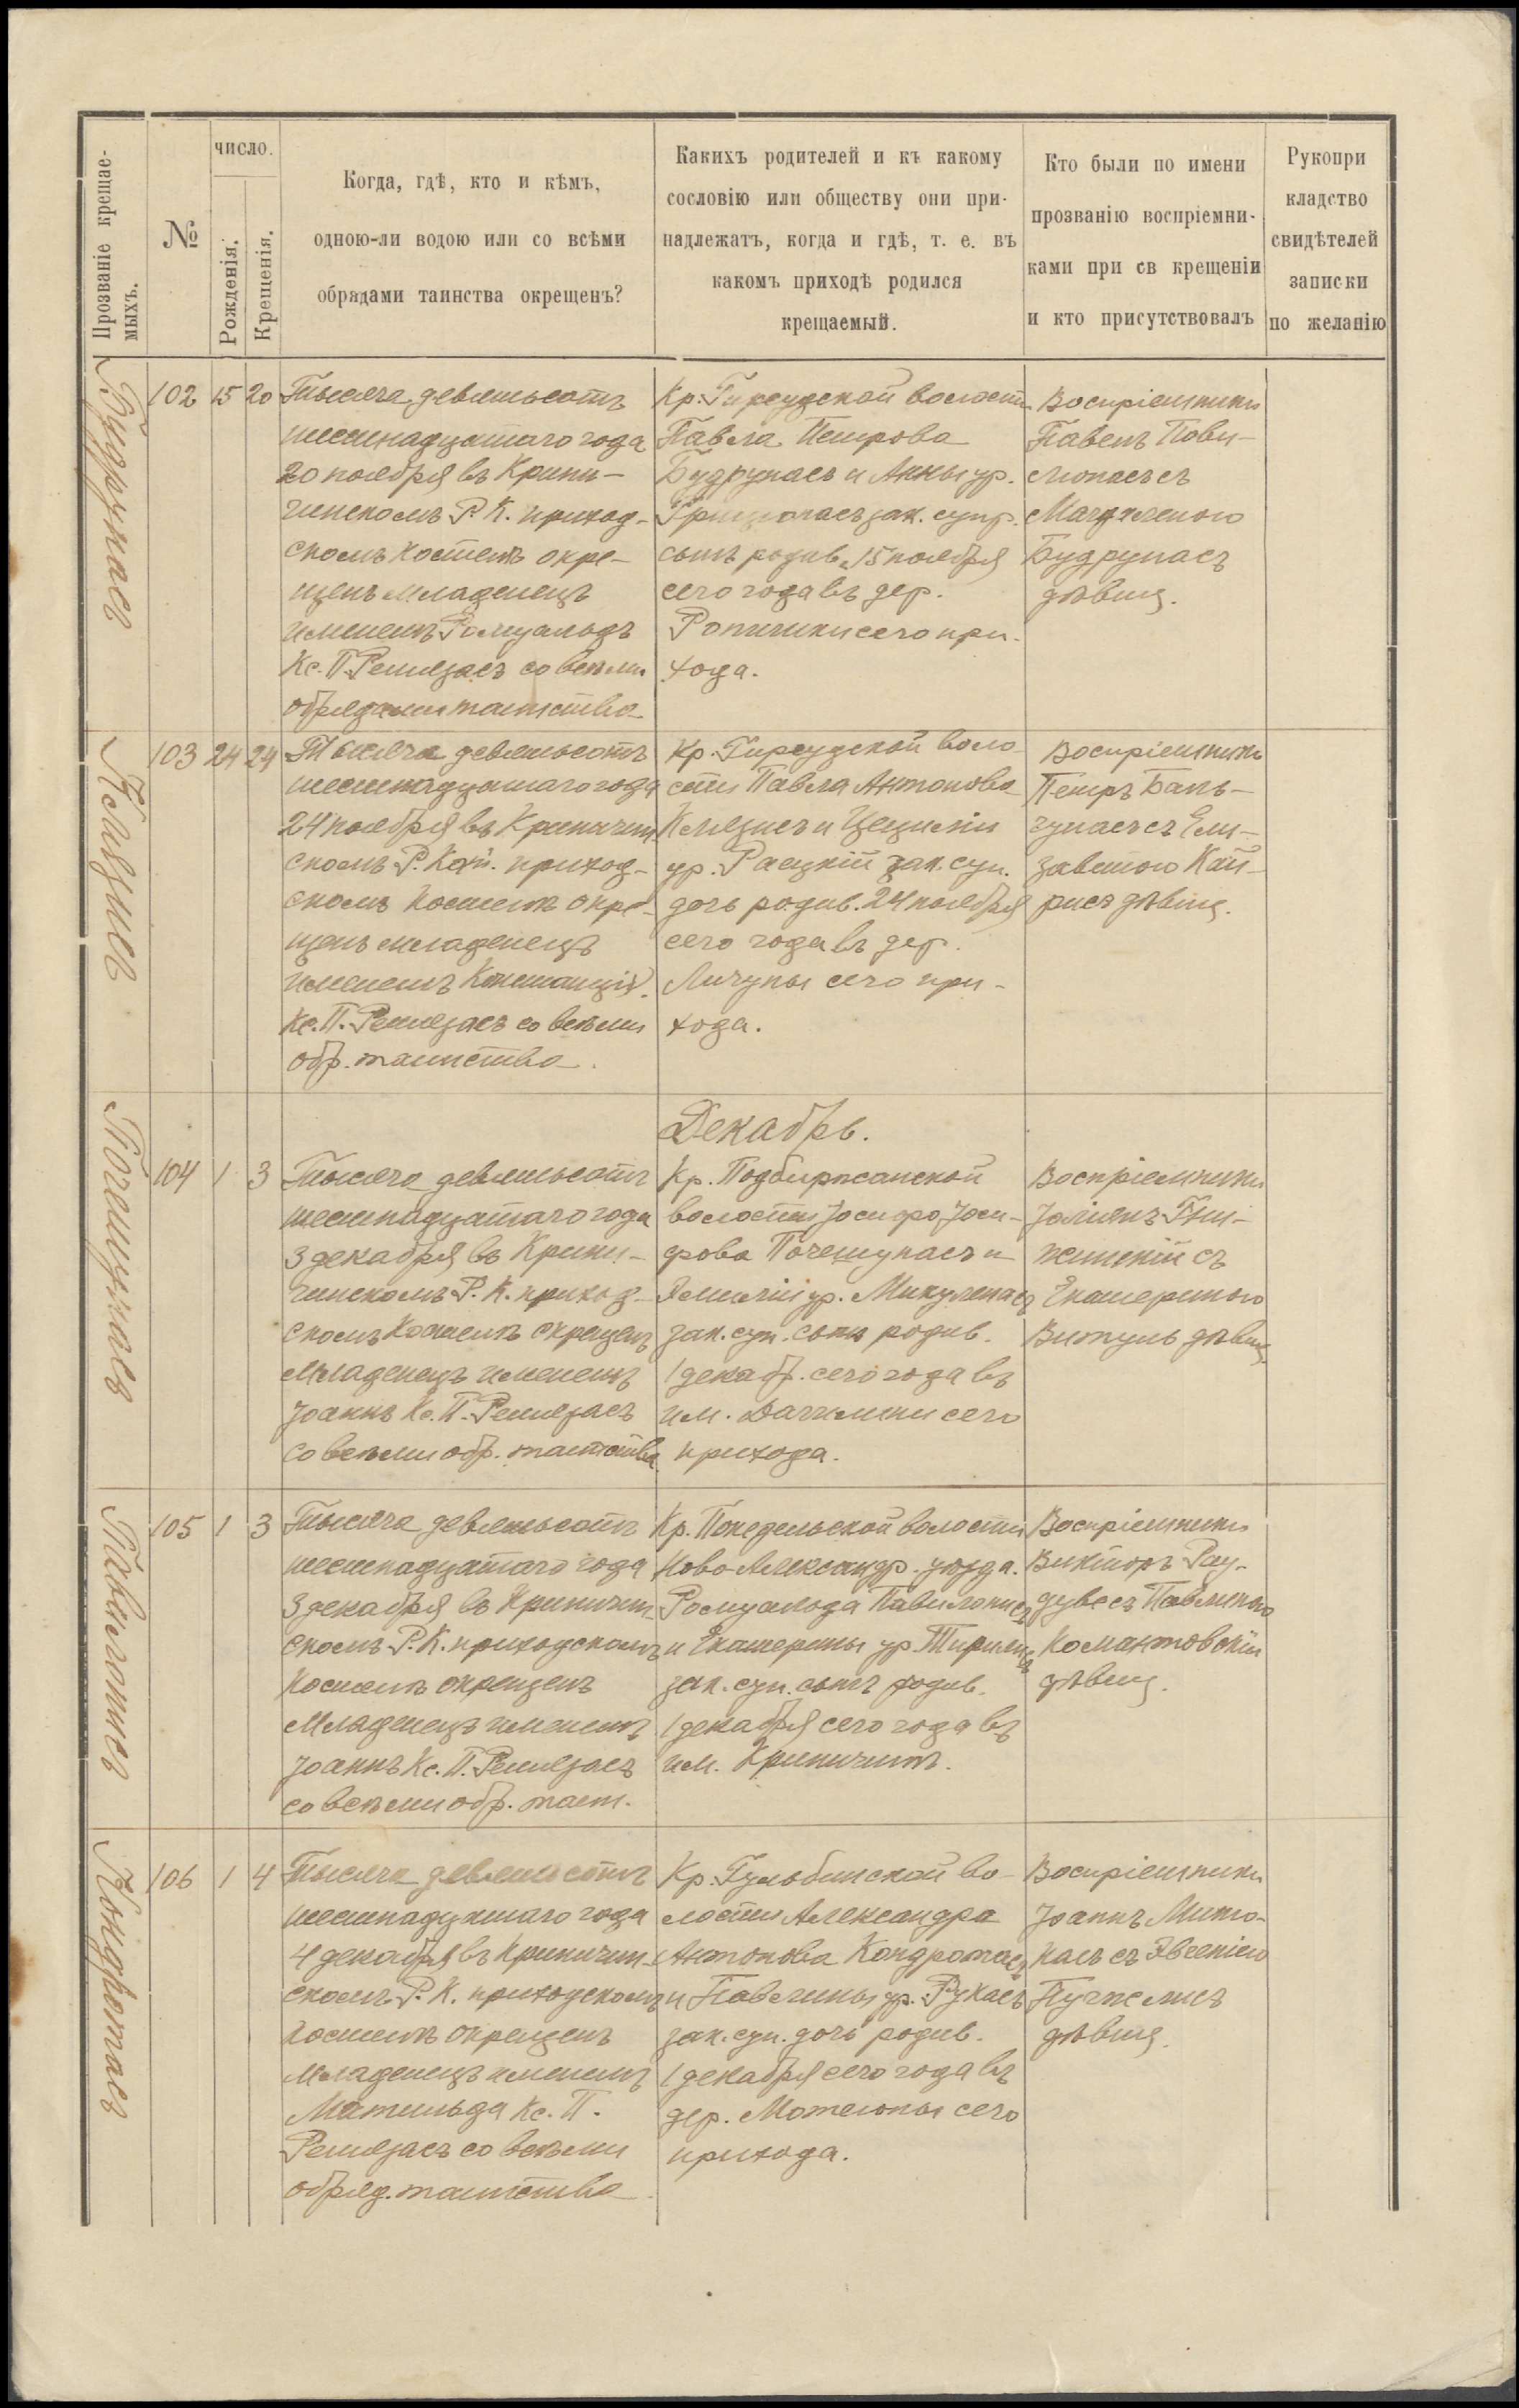 Прозваніе крещае-
мыхъ.
№
число.
Рожденія.
Крещенія.
Когда, гдѣ, кто и кѣмъ,
одною-ли водою или со всѣми
обрядами таинства окрещенъ?
Какихъ родителей и къ какому
сословію или обществу они при-
надлежатъ, когда и гдѣ, т. е. въ
какомъ приходѣ родился
крещаемый.
Кто были по имени
прозванію воспріемни-
ками при св крещеніи
и кто присутствовалъ
Рукопри
кладство
свидѣтелей
записки
по желанію
Будрунасъ
102 15 20
Тысяча девятьсотъ
шестнадцатаго года
20 ноября въ Крини-
чинскомъ Р. К. приход-
скомъ костелѣ окре-
щенъ младенецъ
именемъ Ромуальдъ
Кс. П. Ремезасъ со всѣми
обрядами таинства
Кр. Гирсудской волости
Павла Петрова
Будрунасъ и Анны ур.
зак. супр.
сынъ родив. 15 ноября
сего года въ дер.
сего при-
хода.
Воспріемники
Павелъ Пови-
люнасъ съ
Магдаленою
Будрунасъ
дѣвиц.
Клязисъ
103 24 24
Тысяча девятьсотъ
шестнадцатаго года
24 ноября въ Криничин-
скомъ Р. Кат. приход-
скомъ костелѣ окре-
щенъ младенецъ
именемъ Констанція.
Кс. П. Ремезасъ со всѣми
обр. таинства.
Кр. Гирсудской воло-
сти Павла Антонова
Клязисъ и Цециліи
ур. Расцкій зак. суп.
дочь родив. 24 ноября
сего года въ дер.
Личуны сего при-
хода.
Воспріемники
Петръ Баль-
чунасъ съ Ели-
заветою Кай-
рисъ дѣвиц.
Декабрь.
Почешунасъ
104 1 3
Тысяча девятьсотъ
шестнадцатаго года
3 декабря въ Крини-
чинскомъ Р. К. приход-
скомъ Костелѣ окрещенъ
младенецъ именемъ
Іоаннъ Кс. П. Ремезасъ
со всѣми обр. таинства
Кр. Подбиржанской
волости Іосифа Іоси-
фова Почешунасъ и
Эмиліи ур. Микуленасъ
зак. суп. сынъ родив.
1 декабр. сего года въ
им. сего
прихода.
Воспріемники
Юліянъ
съ
Екатериною
Витуль дѣвиц.
Павилонисъ
105 1 3
Тысяча девятьсотъ
шестнадцатаго года
3 декабря въ Криничин-
скомъ Р. К. приходскомъ
Костелѣ окрещенъ
младенецъ именемъ
Іоаннъ Кс. П. Ремезасъ
со всѣми обр. таин.
Кр. Понедельской волости
Ново Александр. уѣзда.
Ромуальда Павилонисъ
и Екатерины ур.
зак. суп. сынъ родив.
1 декабря сего года въ
им. Криничинъ.
Воспріемники
Викторъ Рау-
дуве съ Павлиною
Комантовскій
дѣвиц.
Кондротасъ
106 1 4
Тысяча девятьсотъ
шестнадцатаго года
4 декабря въ Криничин-
скомъ Р. К. приходскомъ
Костелѣ окрещенъ
младенецъ именемъ
Матильда Кс. П.
Ремезасъ со всѣми
обряд. таинства.
Кр. Гульбинской во-
лости Александра
Антонова Кондротасъ
и Павлины ур. Рукасъ
зак. суп. дочь родив.
1 декабря сего года въ
дер. Мотеюны сего
прихода.
Воспріемники
Іоаннъ Мило-
насъ съ Евгеніею
Пучкелисъ
дѣвиц.